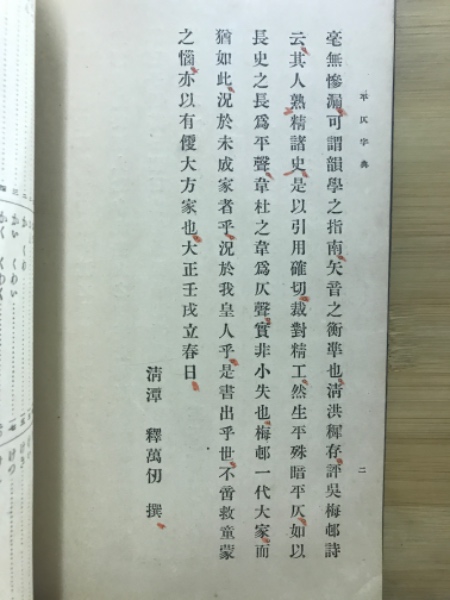 平仄字典
二
毫無慘漏可謂韻學之指南矢音之衡準也清洪稺存評吳梅邨詩
云其人熟精諸史是以引用確切裁對精工然生平殊暗平仄如以
長史之長爲平聲韋杜之韋爲仄聲實非小失也梅邨一代大家而
猶如此況於未成家者乎況於我皇人乎是書出乎世不啻救童蒙
之惱亦以有優大方家也大正壬戌立春日
清潭 釋萬仞 撰